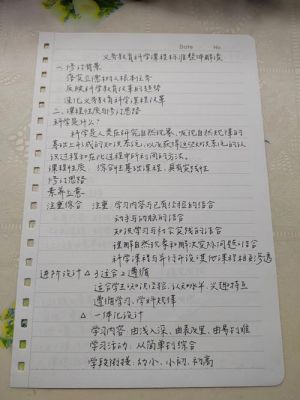 Date No
义务教育科学课程标准整体解读
一、修订背景
落实立德树人根本任务
反映科学教育改革的趋势
深化义务教育科学课程改革
二、课程性质与修订思路
科学是什么?
科学是人类在研究自然现象、发现自然规律的
基础上形成的知识系统,以及获得这些知识系统的认
识过程和在此过程中所利用的方法。
课程性质:综合性基础课程,具有实践性
修订思路
素养立意
注重综合 注重:学习内容与已有经验的结合
动手与动脑的结合
知识学习与社会实践的结合
理解自然现象和解决实际问题的结合
科学课程与并行开设其他课程相互渗透
进阶设计 △ 3适合2遵循
适合学生认知经验、认知水平、兴趣特点
遵循学习、学科规律
△ 一体化设计
学习内容:由浅入深、由表及里、由易到难
学习活动:从简单到综合
学段衔接:幼小、小初、初高